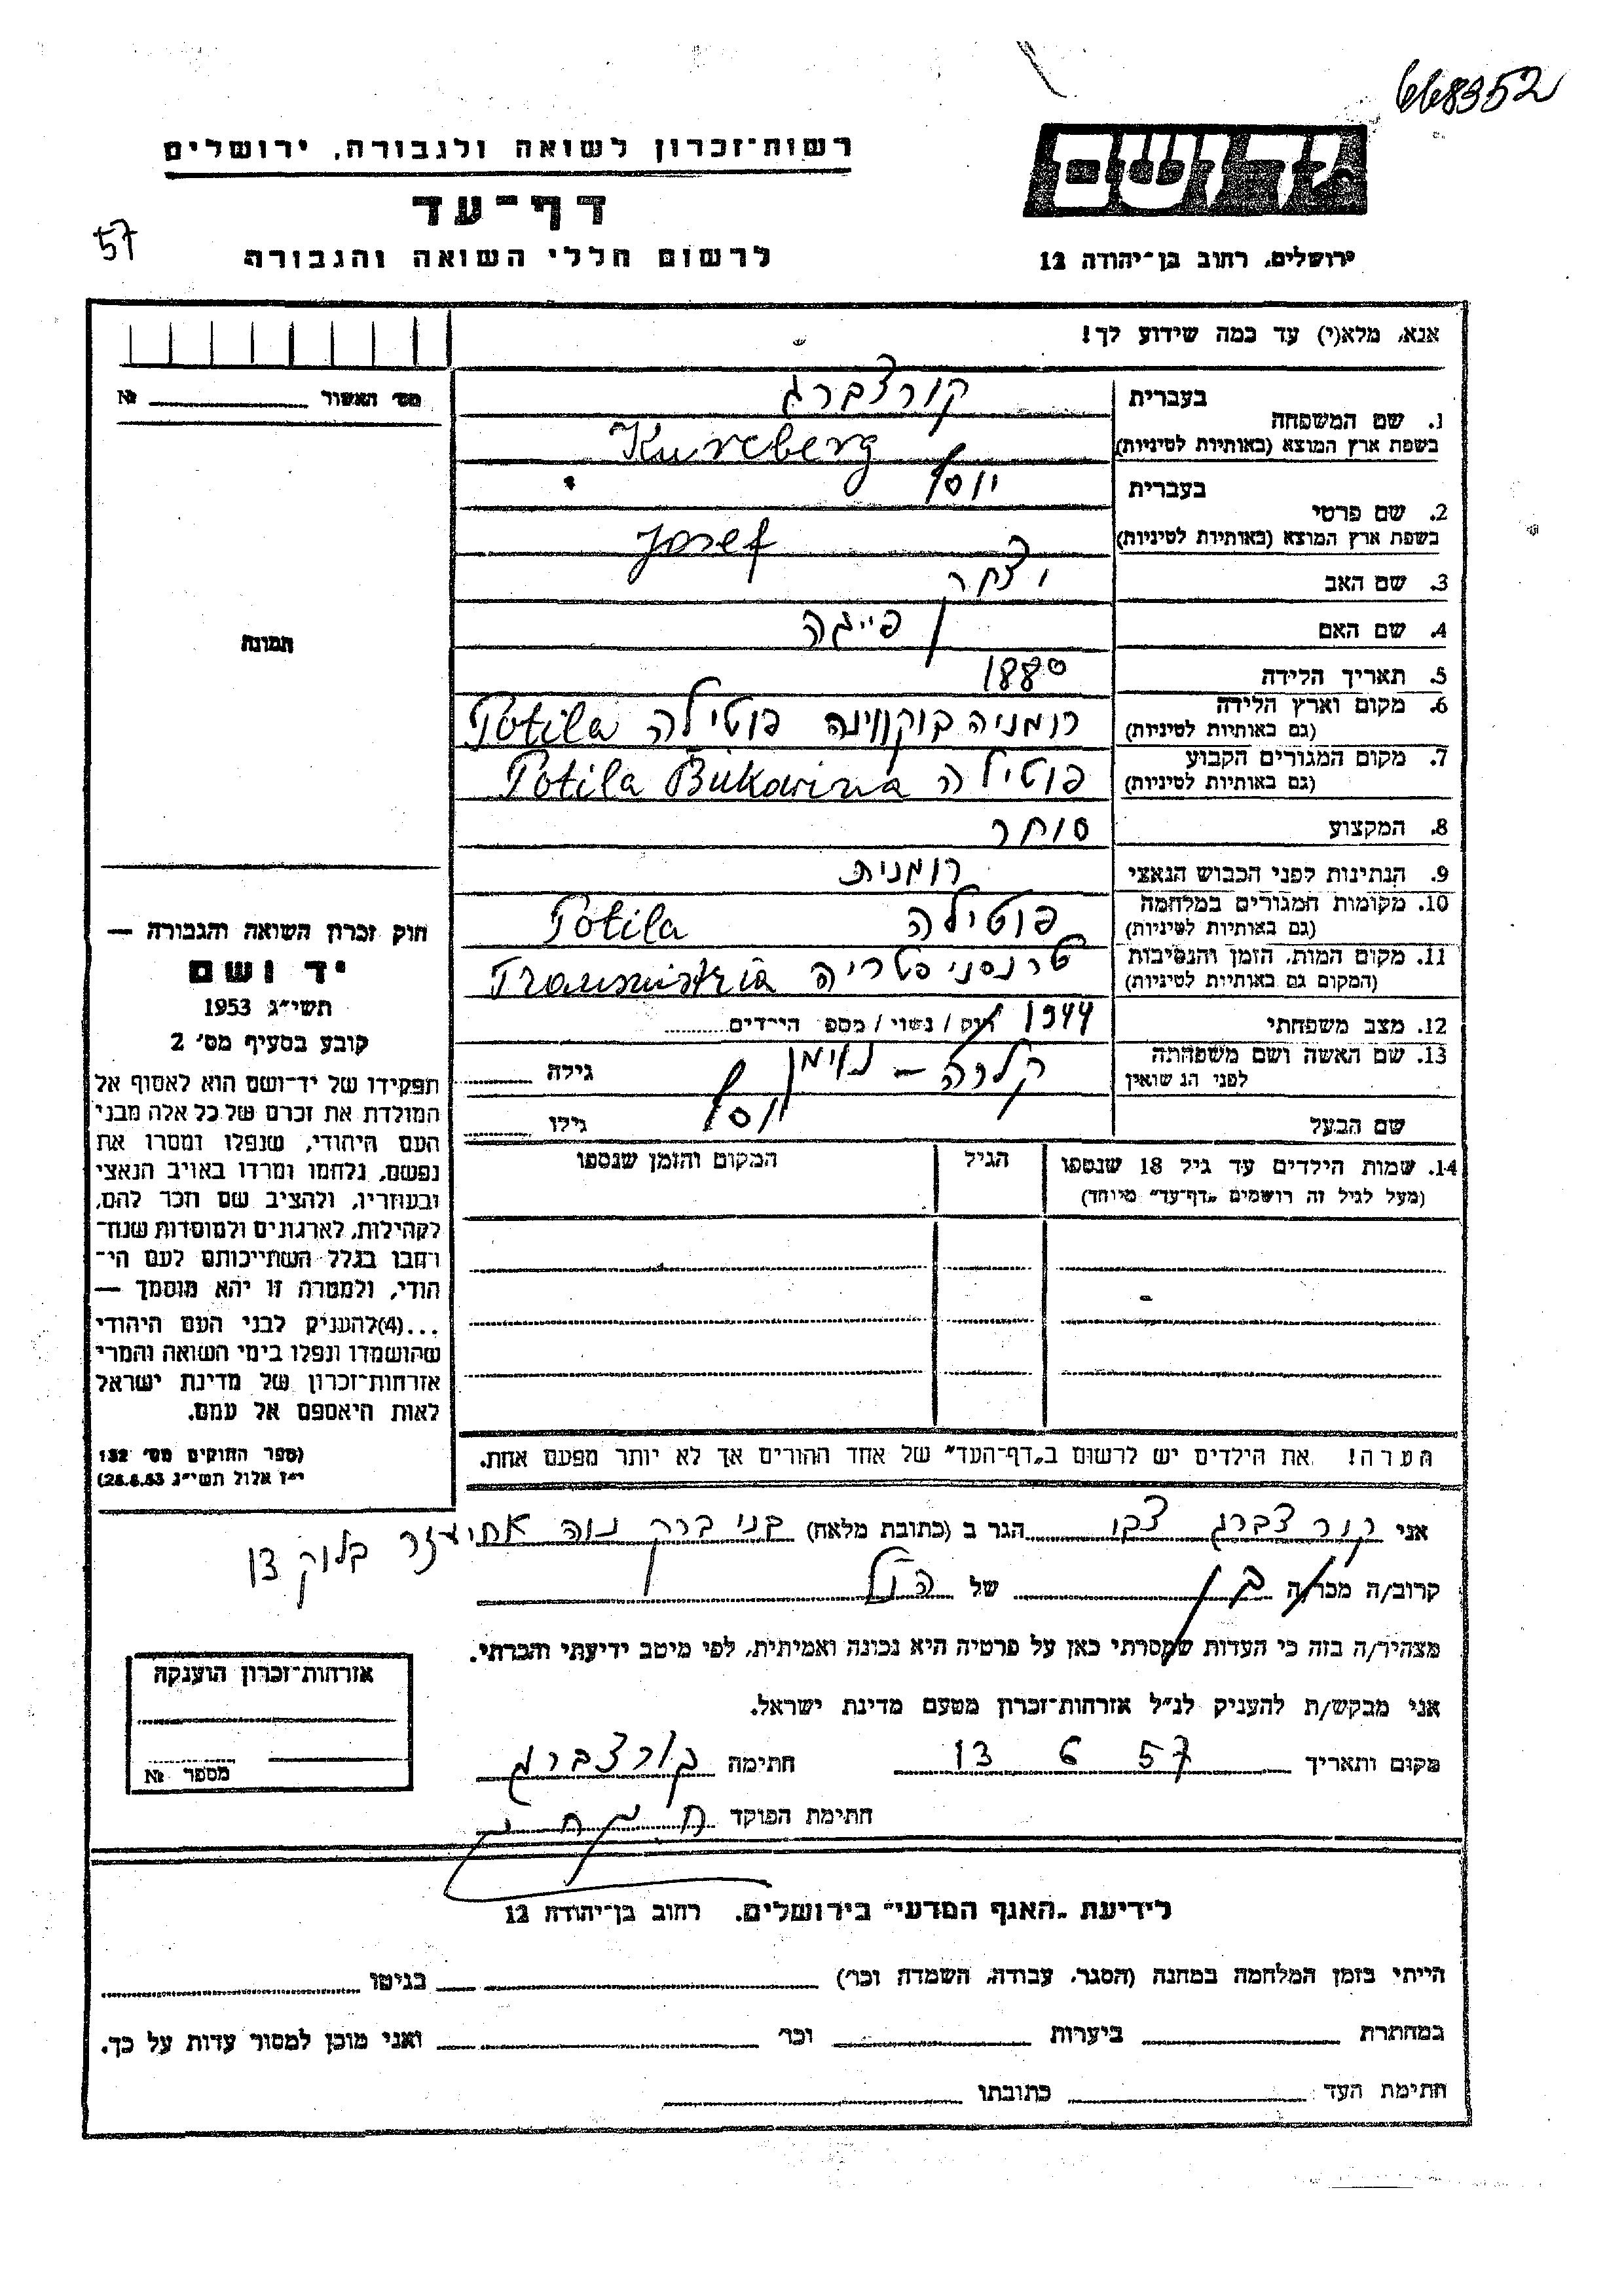 668352
רשות־זכרון לשואה ולגבורה, ירושלים
דף־עד
לרשום חללי השואה והגבורה
57
יד ושם
ירושלים, רחוב בן־יהודה 12
אנא, מלא(י) עד כמה שידוע לך!
מס׳ האשור № 
1. שם המשפחה בעברית קורצברג
בשפת ארץ המוצא (באותיות לטיניות) Kurcberg
2. שם פרטי בעברית יוסף
בשפת ארץ המוצא (באותיות לטיניות) Josef
3. שם האב יצחק
4. שם האם פייגה
5. תאריך הלידה 1880
6. מקום וארץ הלידה (גם באותיות לטיניות) רומניה בוקווינה פוטילה Potila
7. מקום המגורים הקבוע (גם באותיות לטיניות) פוטילה Potila Bukovina
8. המקצוע סוחר
9. הנתינות לפני הכבוש הנאצי רומנית
10. מקומות המגורים במלחמה (גם באותיות לטיניות) פוטילה Potila
11. מקום המות, הזמן והנסיבות (המקום גם באותיות לטיניות) טרנסניסטריה Transnistria
1944
12. מצב משפחתי רוק / נשוי / מספ׳ הילדים
13. שם האשה ושם משפחתה לפני הנשואין קלרה – נוימן גילה
שם הבעל יוסף גילו
14. שמות הילדים עד גיל 18 שנספו הגיל המקום והזמן שנספו
(מעל לגיל זה רושמים „דף־עד״ מיוחד)
הערה! את הילדים יש לרשום ב„דף־העד״ של אחד ההורים אך לא יותר מפעם אחת.
תמונה
חוק זכרון השואה והגבורה —
יד ושם
תשי״ג 1953
קובע בסעיף מס׳ 2
תפקידו של יד־ושם הוא לאסוף אל
המולדת את זכרם של כל אלה מבני
העם היהודי, שנפלו ומסרו את
נפשם, נלחמו ומרדו באויב הנאצי
ובעוזריו, ולהציב שם וזכר להם,
לקהילות, לארגונים ולמוסדות שנח־
רבו בגלל השתייכותם לעם הי־
הודי, ולמטרה זו יהא מוסמך —
...(4)להעניק לבני העם היהודי
שהושמדו ונפלו בימי השואה והמרי
אזרחות־זכרון של מדינת ישראל
לאות היאספם אל עמם.
(ספר החוקים מס׳ 132
י״ז אלול תשי״ג 28.8.53)
אני קורצברג צבי הגר ב (כתובת מלאה) בני ברק נוה אחיעזר בלוק 13
קרוב/ה מכר/ה בן של הנ״ל
מצהיר/ה בזה כי העדות שמסרתי כאן על פרטיה היא נכונה ואמיתית, לפי מיטב ידיעתי והכרתי.
אני מבקש/ת להעניק לנ״ל אזרחות־זכרון מטעם מדינת ישראל.
מקום ותאריך 13 6 57 חתימה קורצברג
חתימת הפוקד
אזרחות־זכרון הוענקה
מספר №
לידיעת „האגף המדעי״ בירושלים, רחוב בן־יהודה 12
הייתי בזמן המלחמה במחנה (הסגר, עבודה, השמדה וכו׳) בגיטו
במחתרת ביערות וכו׳ ואני מוכן למסור עדות על כך.
חתימת העד כתובתו